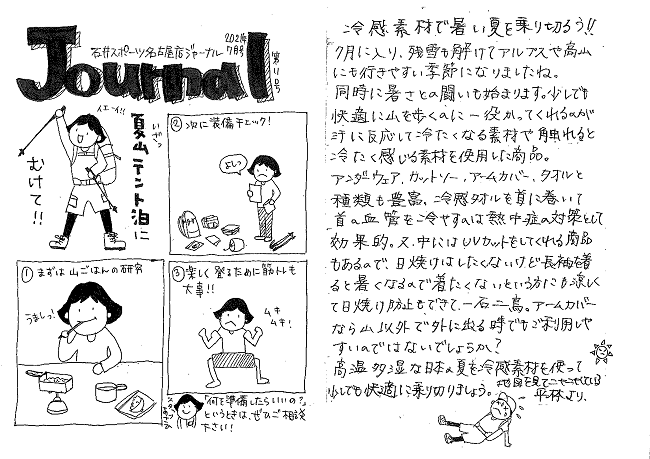 石井スポーツ名古屋店ジャーナル
2021年
7月号
Journal
第11号
イエーイ!!
いざっ
夏山テント泊に
むけて!!
① まずは山ごはんの研究
うましっ!
② 次に装備チェック!
よしっ
③ 楽しく登るために筋トレも
大事!!
ムキ
ムキ!
「何を準備したらいいの?」
というときは、ぜひご相談
下さい!
冷感素材で暑い夏を乗り切ろう!!
7月に入り、残雪も解けてアルプスや高山
にも行きやすい季節になりましたね。
同時に暑さとの闘いも始まります。少しでも
快適に山を歩くのに一役かってくれるのが
汗に反応して冷たくなる素材や触れると
冷たく感じる素材を使用した商品。
アンダーウェア、カットソー、アームカバー、タオルと
種類も豊富。冷感タオルを首に巻いて
首の血管を冷やすのは熱中症の対策として
効果的。又、中にはUVカットをしてくれる商品
もあるので、日焼けはしたくないけど長袖を着
ると暑くなるので着たくないという方にも涼しく
て日焼け防止もできて、一石二鳥。アームカバー
なら山以外で外に出る時でもご利用しや
すいのではないでしょうか?
高温多湿な日本の夏を冷感素材を使って
少しでも快適に乗り切りましょう。
平林より。